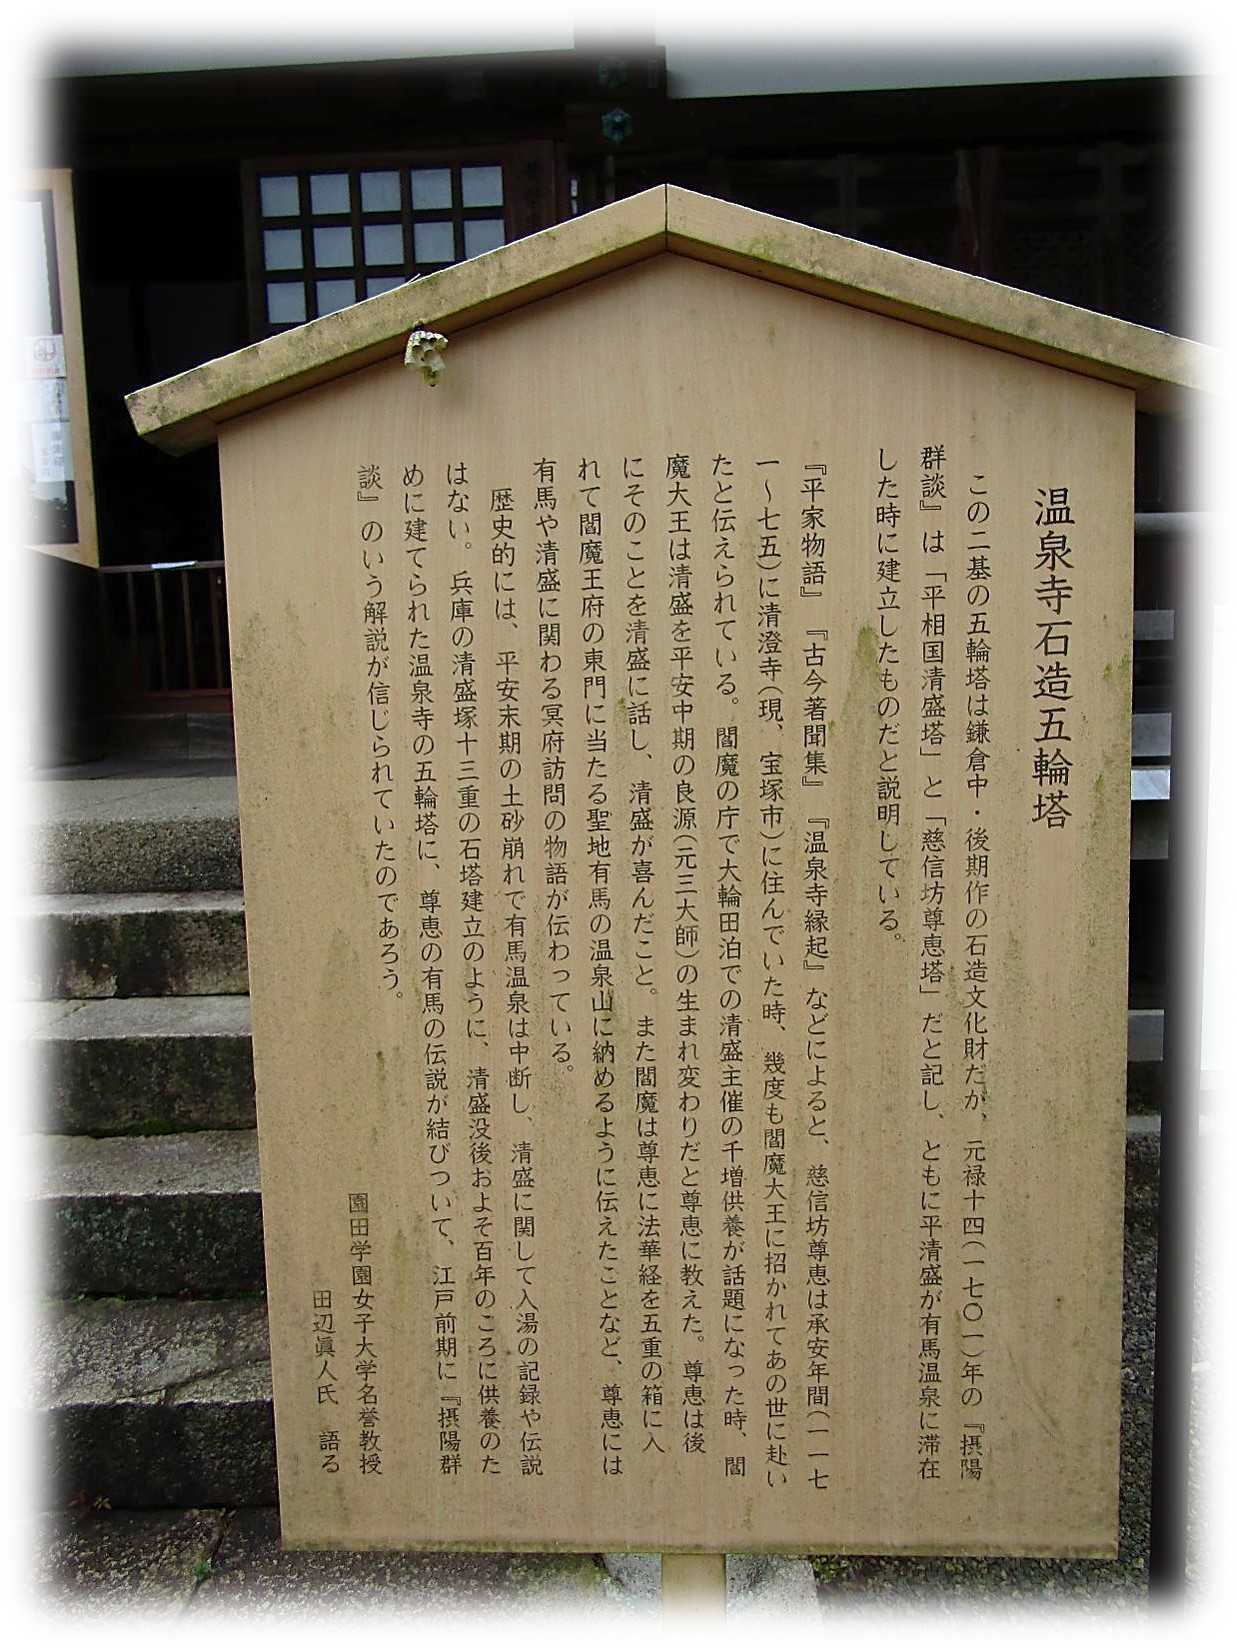 温泉寺石造五輪塔
この二基の五輪塔は鎌倉中・後期作の石造文化財だが、元禄十四(一七〇一)年の『摂陽
群談』は「平相国清盛塔」と「慈信坊尊恵塔」だと記し、ともに平清盛が有馬温泉に滞在
した時に建立したものだと説明している。
『平家物語』『古今著聞集』『温泉寺縁起』などによると、慈信坊尊恵は承安年間(一一七
一〜七五)に清澄寺(現、宝塚市)に住んでいた時、幾度も閻魔大王に招かれてあの世に赴い
たと伝えられている。閻魔の庁で大輪田泊での清盛主催の千増供養が話題になった時、閻
魔大王は清盛を平安中期の良源(元三大師)の生まれ変わりだと尊恵に教えた。尊恵は後
にそのことを清盛に話し、清盛が喜んだこと。また閻魔は尊恵に法華経を五重の箱に入
れて閻魔王府の東門に当たる聖地有馬の温泉山に納めるように伝えたことなど、尊恵には
有馬や清盛に関わる冥府訪問の物語が伝わっている。
歴史的には、平安末期の土砂崩れで有馬温泉は中断し、清盛に関して入湯の記録や伝説
はない。兵庫の清盛塚十三重の石塔建立のように、清盛没後およそ百年のころに供養のた
めに建てられた温泉寺の五輪塔に、尊恵の有馬の伝説が結びついて、江戸前期に『摂陽群
談』のいう解説が信じられていたのであろう。
園田学園女子大学名誉教授
田辺眞人氏 語る